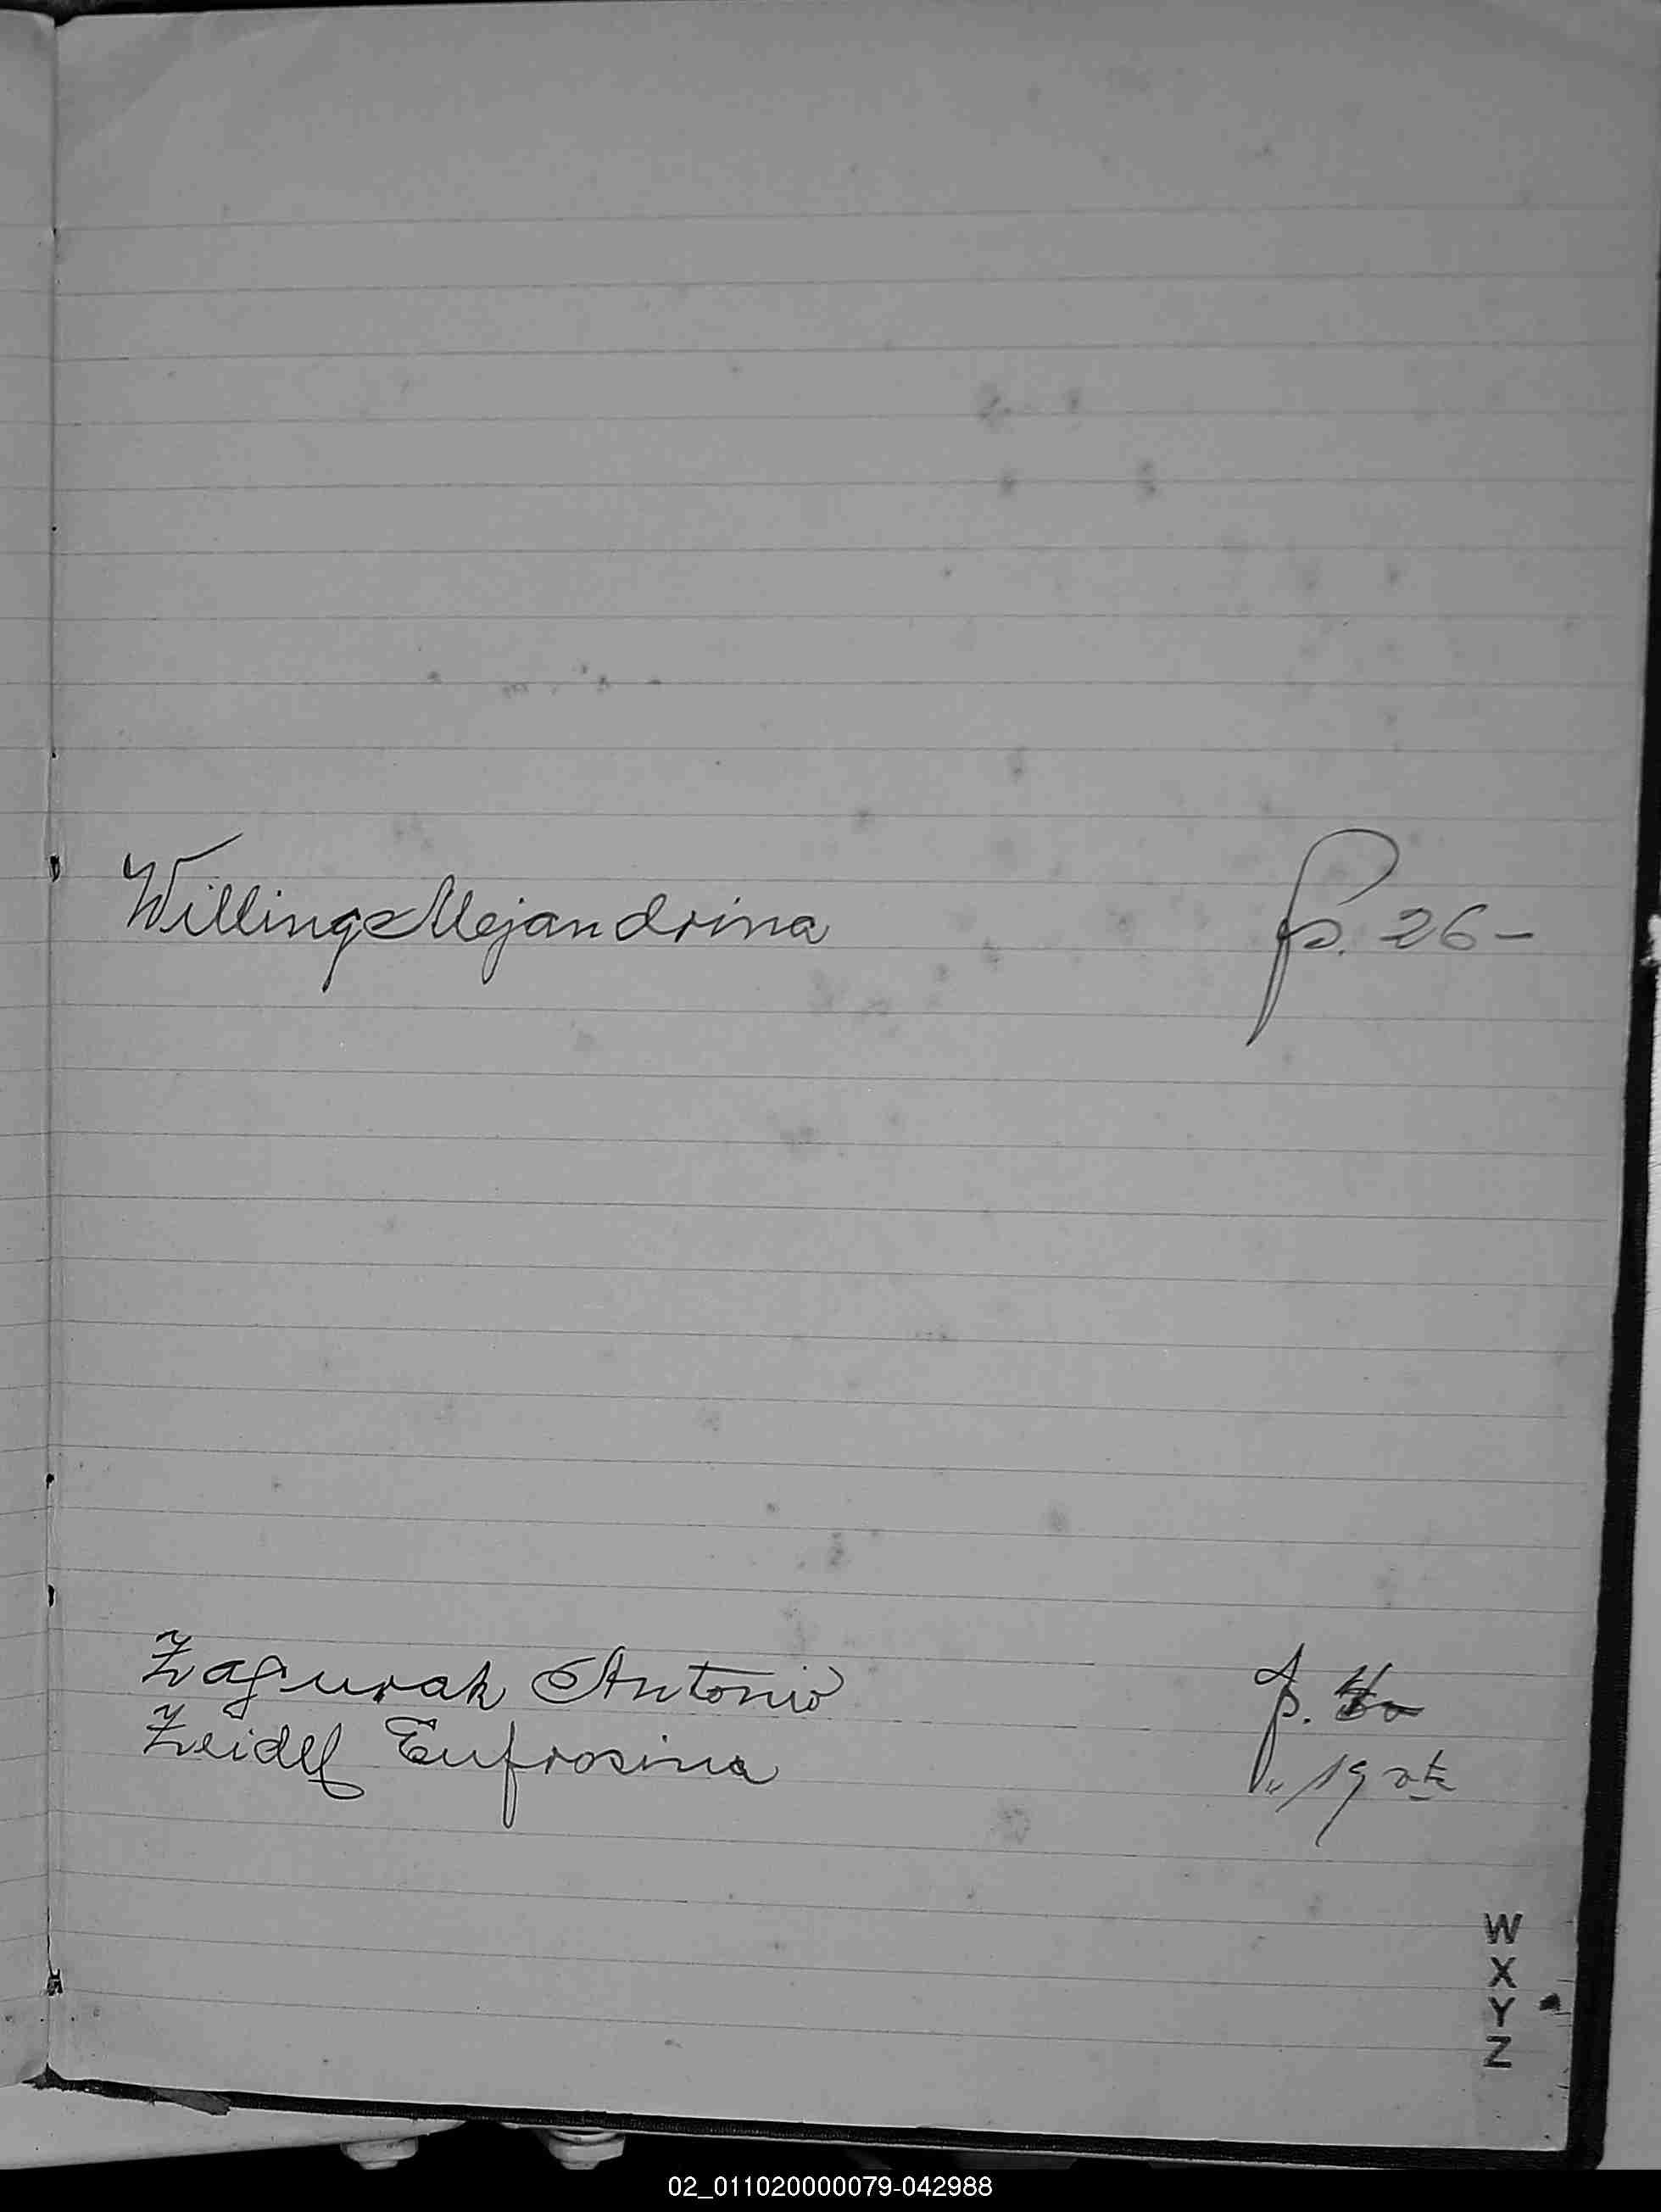 Willing Alejandrina p. 26-
Zagurak Antonio p.
Zeidel Eufrosina " 19 vta
W
X
Y
Z
02_011020000079-042988